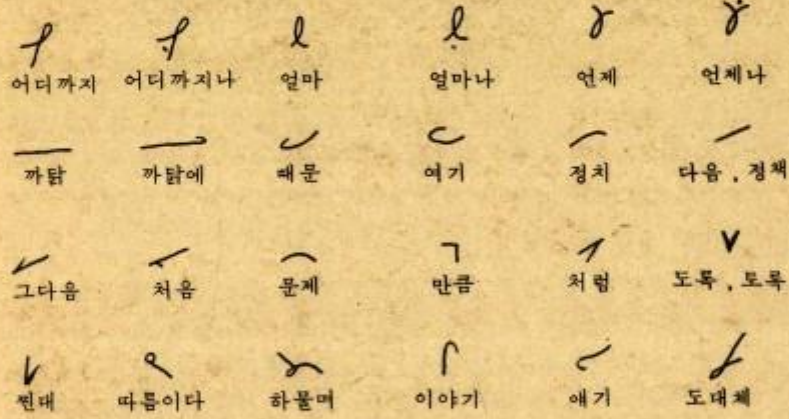 어디까지 어디까지나 얼마 얼마나 언제 언제나
까닭 까닭에 때문 여기 정치 다음 , 정책
그다음 처음 문제 만큼 처럼 도록 , 토록
찐대 따름이다 하물며 이야기 얘기 도대체